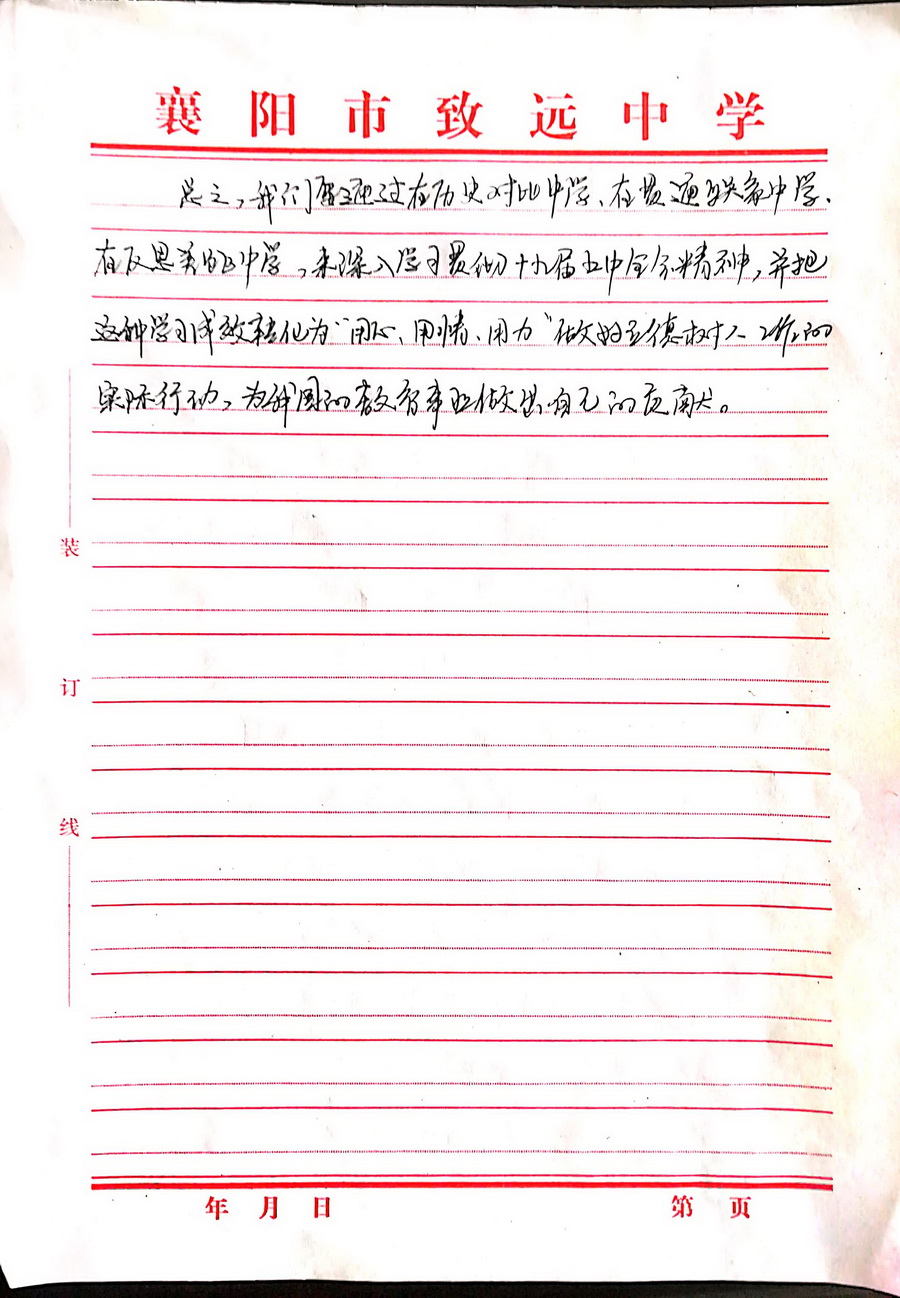 襄阳市致远中学
总之，我们要通过在历史对比中学、在普遍联系中学、
在反思美的中学，来深入学习贯彻十九届五中全会精神，并把
这种学习成效转化为“用心、用情、用力”做好立德树人工作的
实际行动，为我国的教育事业做出自己的贡献。
装
订
线
年 月 日
第 页